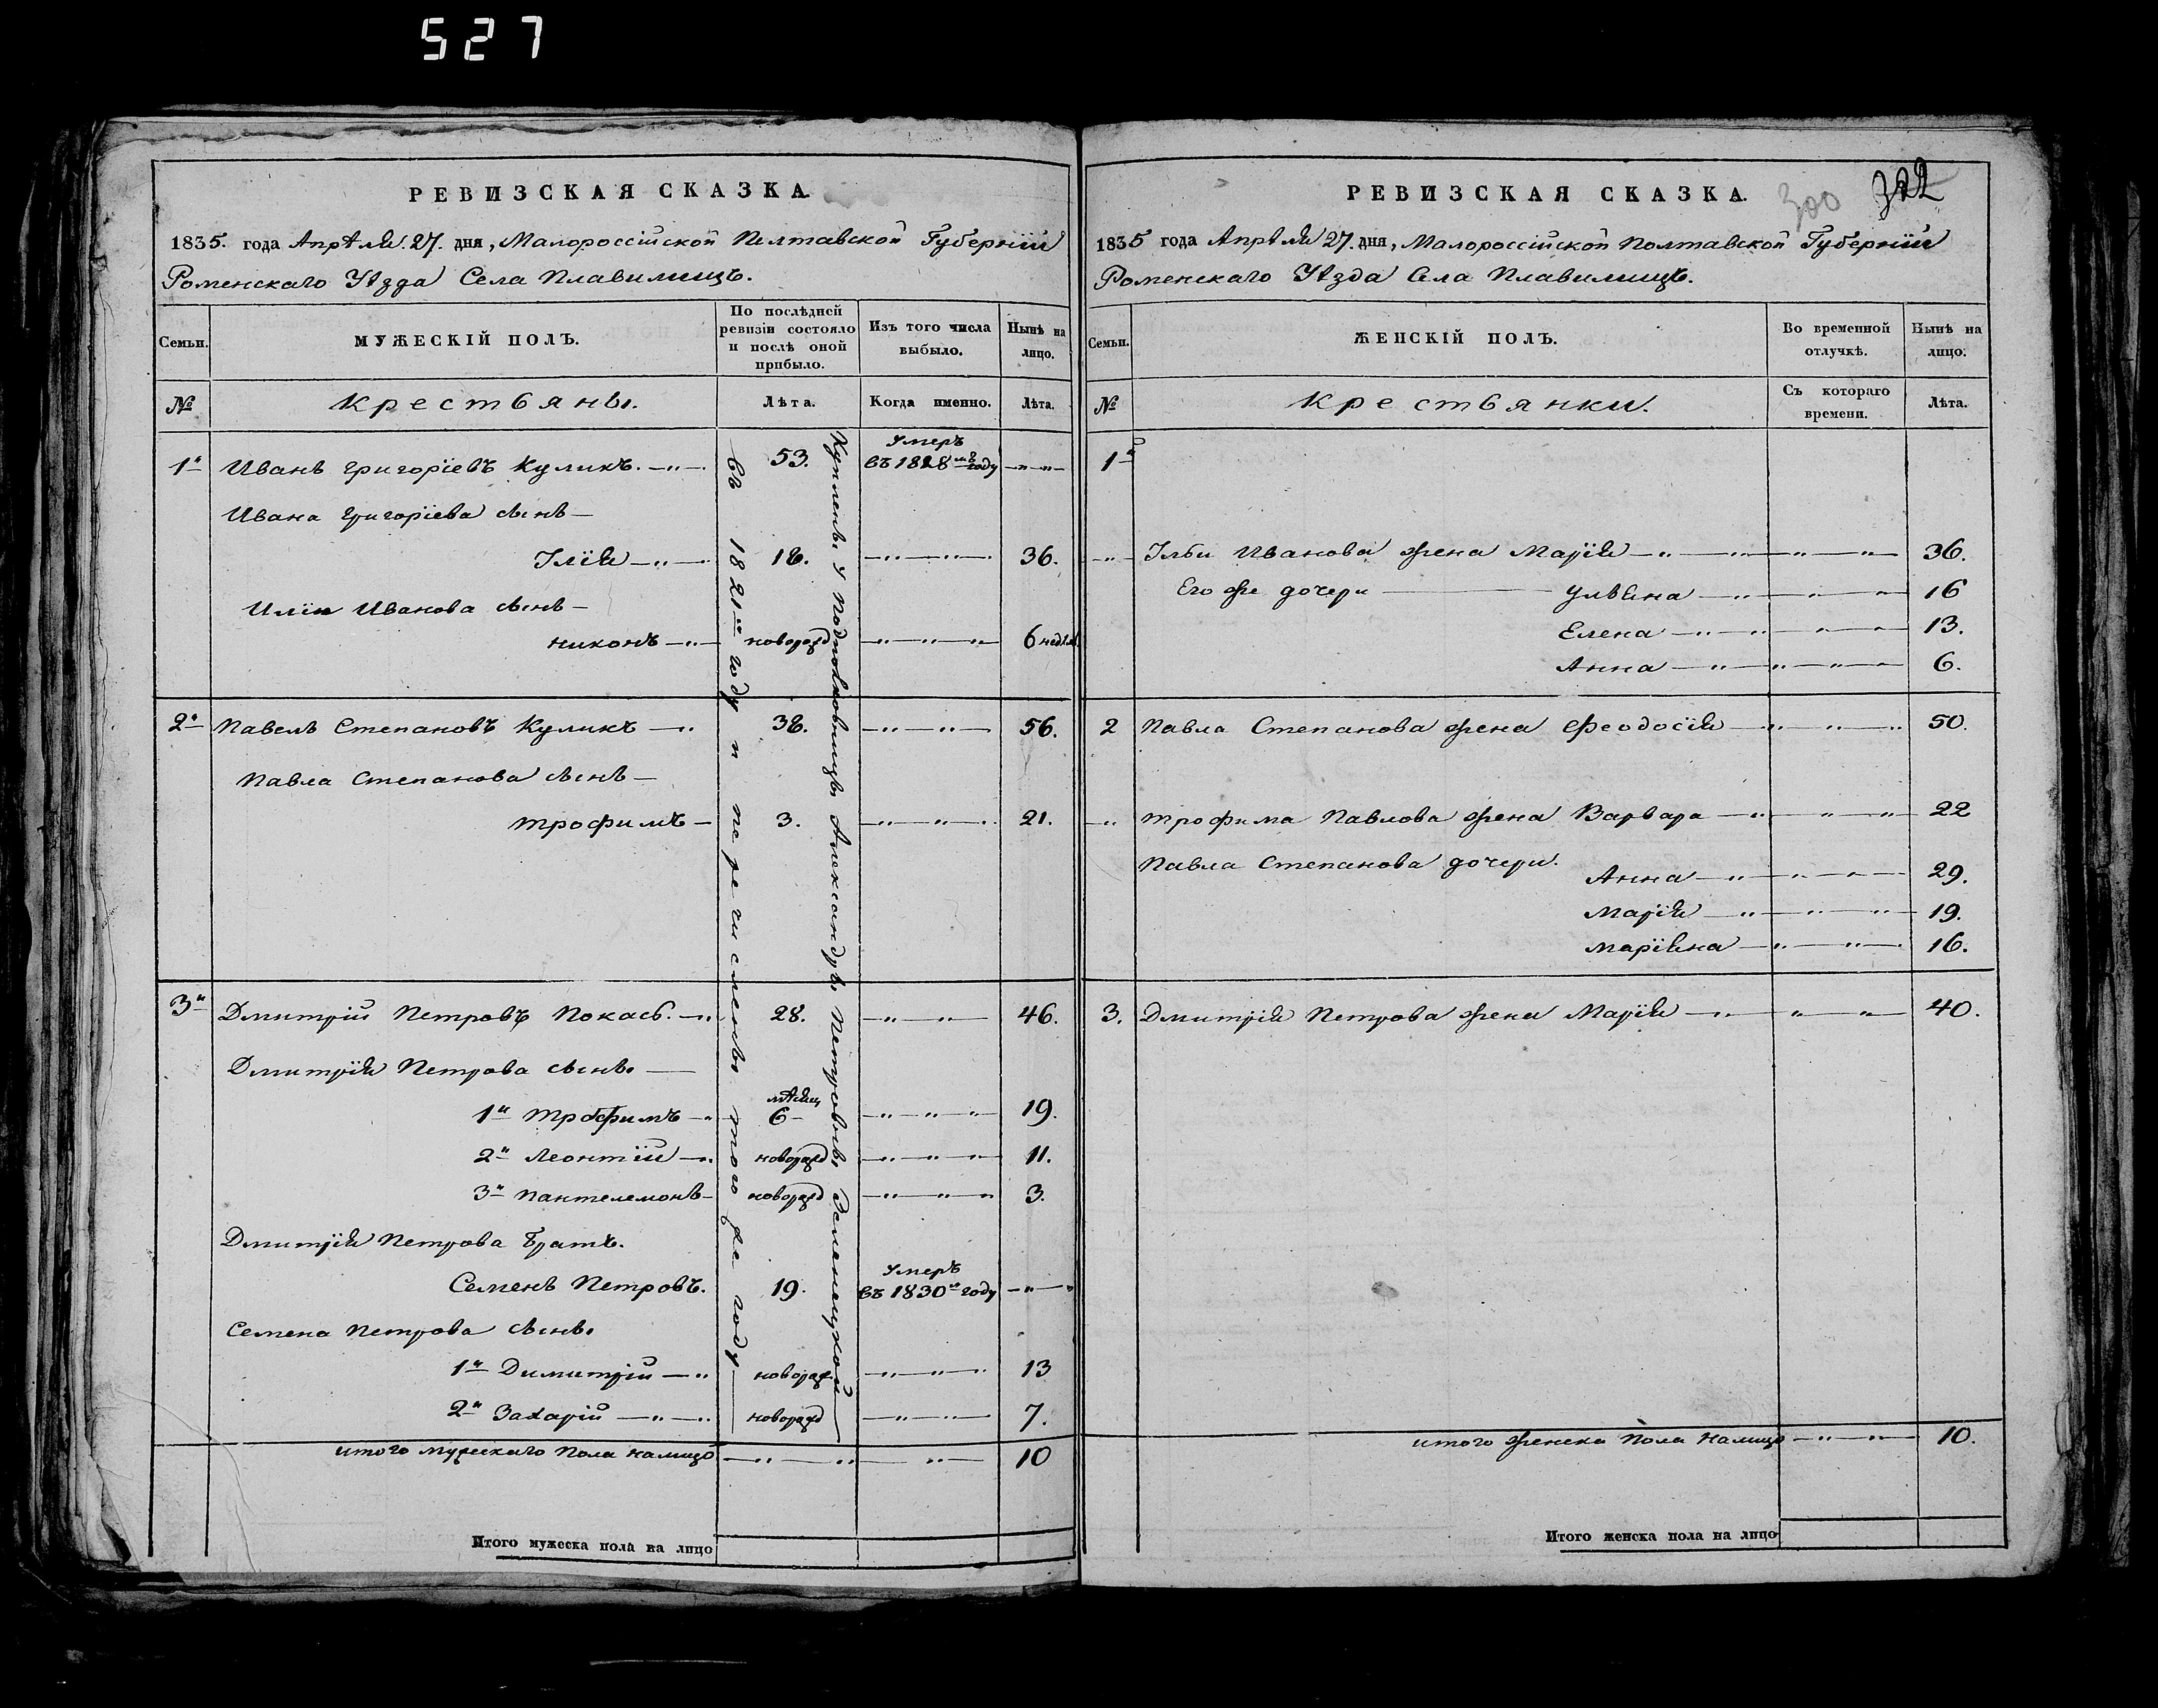 527
РЕВИЗСКАЯ СКАЗКА
1835. года Апрѣля. 27. дня, Малороссійской Полтавской Губерніи
Роменскаго Уѣзда Села Плавилищъ.
Семьи. МУЖЕСКІЙ ПОЛЪ. По послѣдней ревизіи состояло и послѣ оной прибыло. Изъ того числа выбыло. Нынѣ на лицо.
№ Крестьяны. Лѣта. Когда именно. Лѣта.
1й Иванъ Григоріевъ Куликъ. 53. Умеръ въ 1828мъ году
Ивана Григоріева сынъ
Ілія 18. 36.
Иліи Иванова сынъ
Никонъ новорожд 6 недѣл
2й Павелъ Степановъ Куликъ 38. 56.
Павла Степанова сынъ
Трофимъ 3. 21.
3й Дмитрій Петровъ Покась. 28. 46.
Дмитрія Петрова сыны
1й Трофимъ 6 мѣсяц 19.
2й Леонтій новорожд 11.
3й Пантелемонъ новорожд 3.
Дмитрія Петрова братъ.
Семенъ Петровъ. 19. Умеръ въ 1830м году
Семена Петрова сыны
1й Димитрій новорожд 13
2й Захарій новорожд 7.
въ 1821м году и перечислены того же году
Куплены у Подполковницы Александры Петровны Зеленецкой
итого мужескаго пола налицо 10
Итого мужеска пола на лицо
РЕВИЗСКАЯ СКАЗКА.
300 322
1835 года Апрѣля 27. дня, Малороссійской Полтавской Губерніи
Роменскаго Уѣзда Села Плавилищъ.
Семьи. ЖЕНСКІЙ ПОЛЪ. Во временной отлучкѣ. Нынѣ на лицо.
№ Крестьянки. Съ котораго времени. Лѣта.
1й
Ільи Иванова жена Марія 36.
Его же дочери Ульяна 16
Елена 13.
Анна 6.
2 Павла Степанова жена Феодосія 50.
Трофима Павлова жена Варвара 22
Павла Степанова дочери.
Анна 29.
Марія 19.
Маріяна 16.
3. Дмитрія Петрова жена Марія 40.
итого женска пола налицо 10.
Итого женска пола на лицо